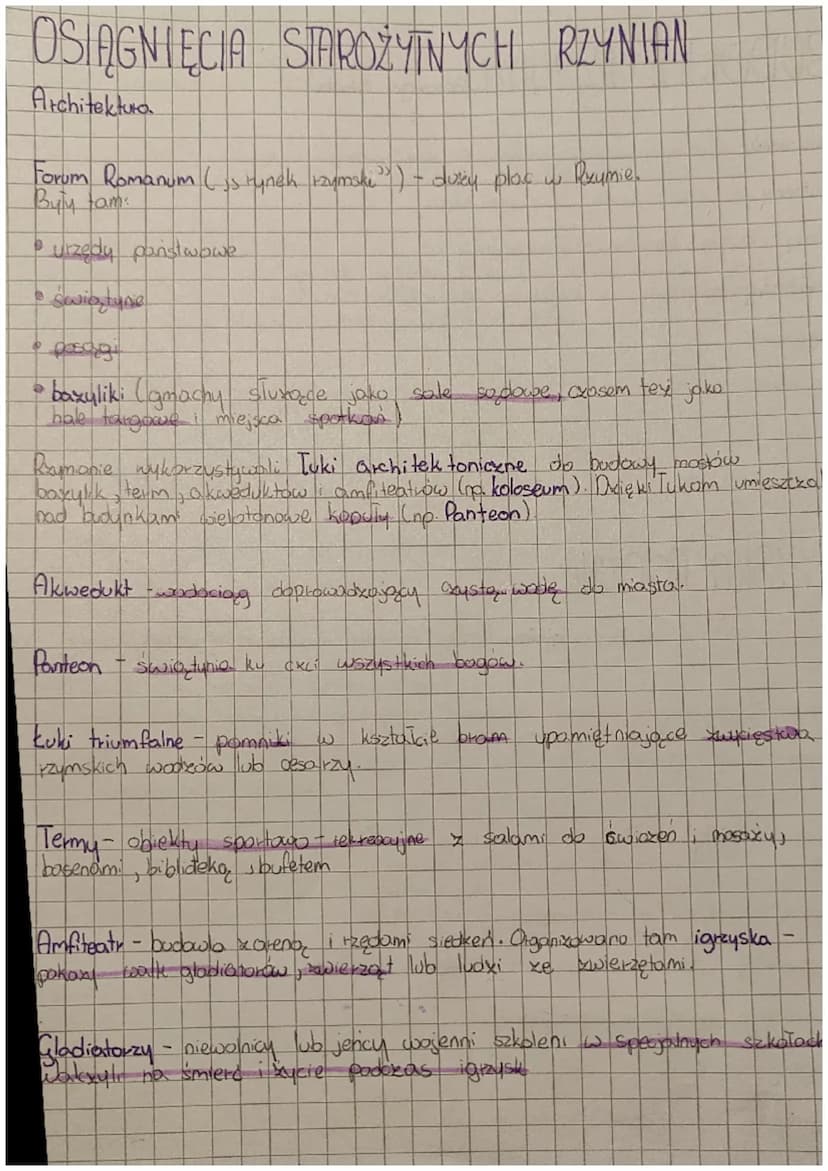 OSIĄGNIĘCIA STAROŻYTNYCH RZYNIAN
Architektura
Forum Romanum („rynek rzymski”) - duży plac w Rzymie.
Były tam:
• urzędy państwowe
• świątynie
• posągi
• bazyliki (gmachy służące jako sale sądowe, czasem też jako
hale targowe i miejsca spotkań)
Rzmanie wykorzystywali łuki architektoniczne do budowy mostów
bazylik, term, akweduktów i amfiteatrów (np. koloseum). Dzięki łukom umieszczal
nad budynkami wielotonowe kopuły (np. Panteon)
Akwedukt - wodociąg doprowadzający czystą wodę do miasta.
Panteon - świątynia ku czci wszystkich bogów.
Łuki triumfalne - pomniki w kształcie bram upamiętniające zwycięstwa
rzymskich wodzów lub cesarzy.
Termy - obiekty sportowo - rekreacyjne z salami do ćwiczeń i masaży,
basenami, biblioteką, bufetem
Amfiteatr - budowla z areną i rzędami siedzeń. Organizowano tam igrzyska -
pokazy walk gladiatorów, zwierząt lub ludzi ze zwierzętami.
Gladiatorzy - niewolnicy lub jeńcy wojenni szkoleni w specjalnych szkołach
Walczyli na śmierć i życie podczas igrzysk